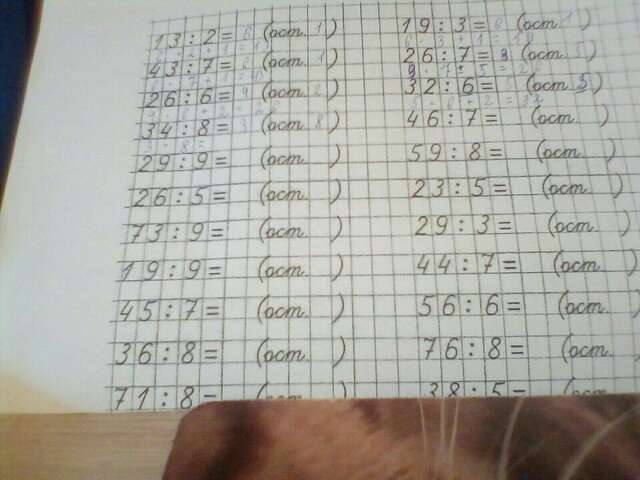 13:2= 6 (ост. 1) 19:3= 6 (ост. 1)
43:7= 6 (ост. 1) 26:7= 3 (ост. 5)
26:6= 4 (ост. 2) 32:6= 5 (ост. )
34:8= 3 (ост. 8) 46:7= (ост. )
29:9= (ост. ) 59:8= (ост. )
26:5= (ост. ) 23:5= (ост. )
73:9= (ост. ) 29:3= (ост. )
19:9= (ост. ) 44:7= (ост. )
45:7= (ост. ) 56:6= (ост.
36:8= (ост. ) 76:8= (ост.
71:8= (ост. ) 38:5= (ост.